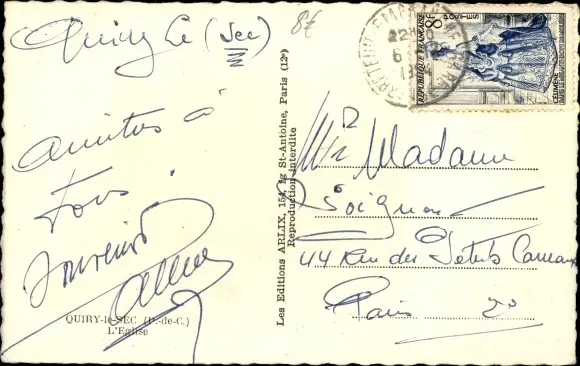 Quiry le (Sec)
8€
Amitiés à
Tous
Souvenir
QUIRY-le-SEC (P.-de-C.)
L'Eglise
Les Editions ARLIX, 154, fg St-Antoine, Paris (12e)
Reproduction interdite
22H
6
RÉPUBLIQUE FRANÇAISE
8F
POSTES
CÉLIMÈNE
Mr Madame
Soignon
44 Rue des Petits Carreaux
Paris 2e